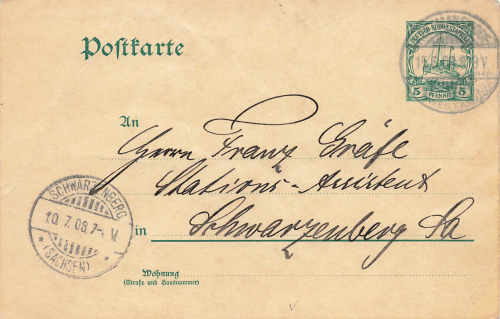 Postkarte
DEUTSCH-SÜDWESTAFRIKA
5 PFENNIG 5
An
Herrn Franz Gräfe
Stations-Assistent
in Schwarzenberg Sa
SCHWARZENBERG
10.7.08.7-. V.
* (SACHSEN) *
Wohnung
(Straße und Hausnummer)